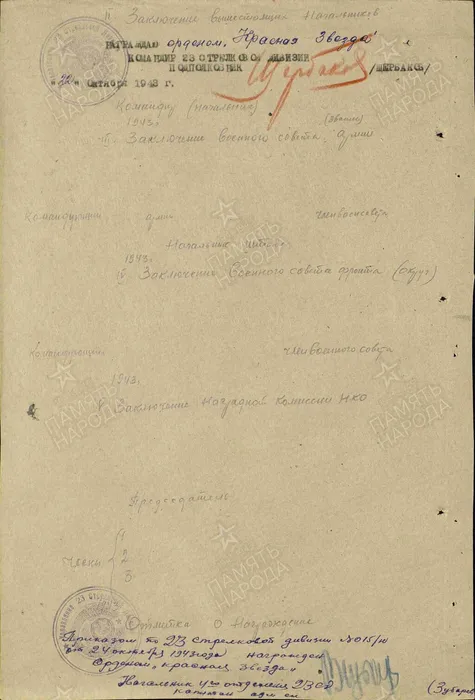 II Заключение вышестоящих Начальников
НАГРАЖДАЮ орденом „Красная Звезда"
КОМАНДИР 23 СТРЕЛКОВОЙ ДИВИЗИИ
ПОДПОЛКОВНИК Щербаков /ЩЕРБАКОВ/
"22" Октября 1943 г.
Командир (начальник)
1943г. (звание)
III Заключение Военного совета Армии
Командующий армии член военсовета
Начальник штаба
1943г
IV Заключение Военного совета фронта (округа)
Командующий член Военного совета
1943г.
V Заключение Наградной комиссии НКО
Председатель
Члены
1
2
3
Отметка о Награждении
Приказом по 23 Стрелковой дивизии №015/н
от 24 октября 1943 года награжден
Орденом „красная звезда"
Начальник 4го отделения 23 сд
капитан адм сл.
ПАМЯТЬ НАРОДА
ПАМЯТЬ НАРОДА
ПАМЯТЬ НАРОДА
ПАМЯТЬ НАРОДА
ПАМЯТЬ НАРОДА
ПАМЯТЬ НАРОДА